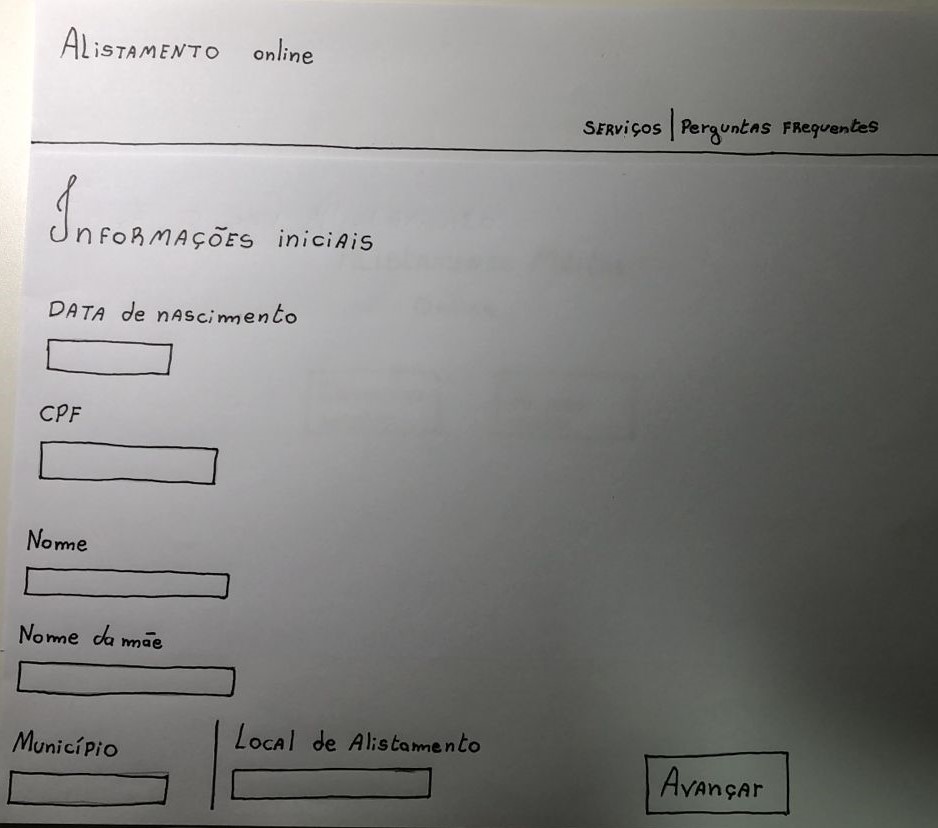 Alistamento online
Serviços | Perguntas Frequentes
Informações iniciais
Data de nascimento
CPF
Nome
Nome da mãe
Município | Local de Alistamento
Avançar